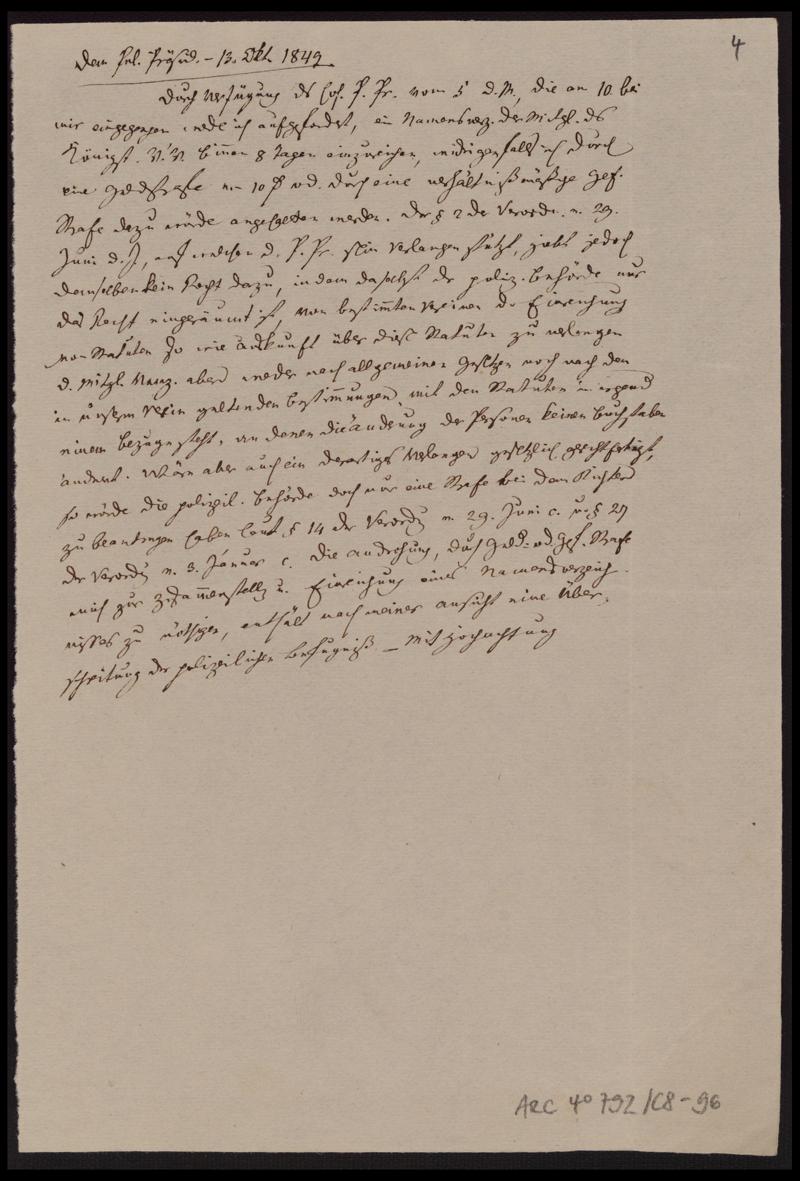 4
Dem Pol. Präsid. – 13. Okt. 1849.
Durch Verfügung ds Hof. P. Pr. vom 5 d. M., die am 10. bei
mir eingegangen werde ich aufgefordert, ein Namensverz. der Mitgl. ds
Königst. V. V. binnen 8 Tagen einzureichen, widrigenfalls ich durch
eine Geldstrafe v. 10 od. durch eine verhältnißmäßige Gef.
Strafe dazu würde angehalten werden. Der § 2 der Verordn. v. 29.
Juni d. J., auf welchen d. P. Pr. sein Verlangen stützt, giebt jedoch
demselben kein Recht dazu, in dem daselbst der poliz. Behörde nur
das Recht eingeräumt ist, von bestimmten Vereinen die Einreichung
von Statuten so wie Auskunft über diese Statuten zu verlangen
d. Mitgl. Verz. aber weder nach allgemeinen Gesetzen noch nach den
in unserm Verein geltenden Bestimmungen mit den Statuten in irgend
einem Bezuge steht, an denen die Änderung der Personen keinen Buchstaben
ändert. Wäre aber auch ein derartiges Verlangen gesetzlich gerechtfertigt,
so würde die polizeil. Behörde doch nur eine Strafe bei dem Richter
zu beantragen haben laut § 14 der Verordn v. 29. Juni c. u. § 27
der Verordn v. 3. Januar c. Die Androhung, durch Geld- od. Gef. Strafe
mich zur Zusammenstellg u. Einreichung eines Namensverzeich-
nisses zu nöthigen, enthält nach meiner Ansicht eine Über-
schreitung der polizeilichen Befugniß – Mit Hochachtung
ARC 4° 792 / C8 - 96